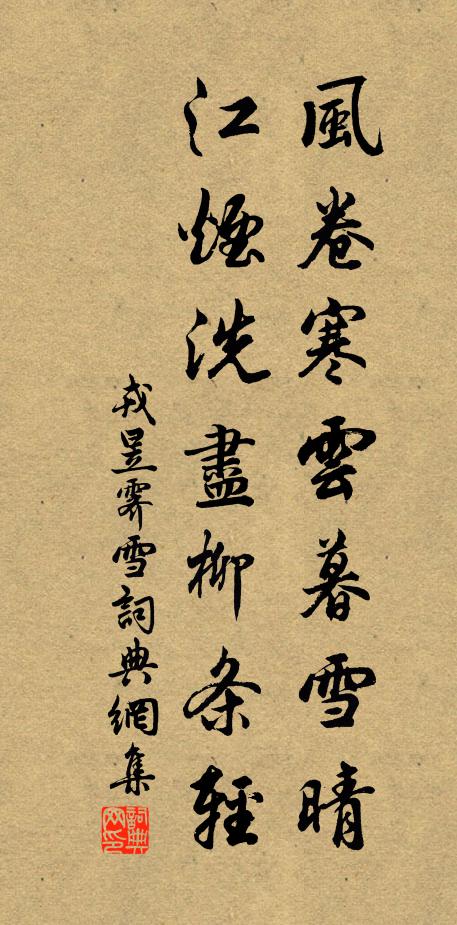 風卷寒雲暮雪晴
江煙洗盡柳条輕
戎昱霽雪詞典網集
詞典网印